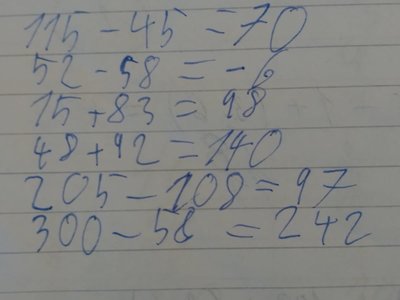 115 - 45 = 70
52 - 58 = -6
15 + 83 = 98
48 + 92 = 140
205 - 108 = 97
300 - 58 = 242